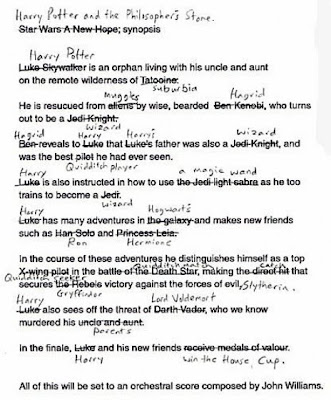 Harry Potter and the Philosopher's Stone.
Star Wars A New Hope; synopsis
Harry Potter
Luke Skywalker is an orphan living with his uncle and aunt
on the remote wilderness of Tatooine.
suburbia
muggles Hagrid
He is resucued from aliens by wise, bearded Ben Kenobi, who turns
out to be a Jedi Knight.
wizard
Hagrid Harry Harry's wizard
Ben reveals to Luke that Luke's father was also a Jedi Knight, and
was the best pilot he had ever seen.
Quidditch player
Harry a magic wand
Luke is also instructed in how to use the Jedi light sabra as he too
trains to become a Jedi.
wizard
Harry Hogwarts
Luke has many adventures in the galaxy and makes new friends
such as Han Solo and Princess Leia.
Ron Hermione
In the course of these adventures he distinguishes himself as a top
Quidditch seeker Quidditch match catch
X-wing pilot in the battle of the Death Star, making the direct hit that
secures the Rebels victory against the forces of evil, Slytherin.
Gryffindor
Harry Lord Voldemort
Luke also sees off the threat of Darth Vador, who we know
murdered his uncle and aunt.
parents
In the finale, Luke and his new friends receive medals of valour.
Harry win the House Cup.
All of this will be set to an orchestral score composed by John Williams.